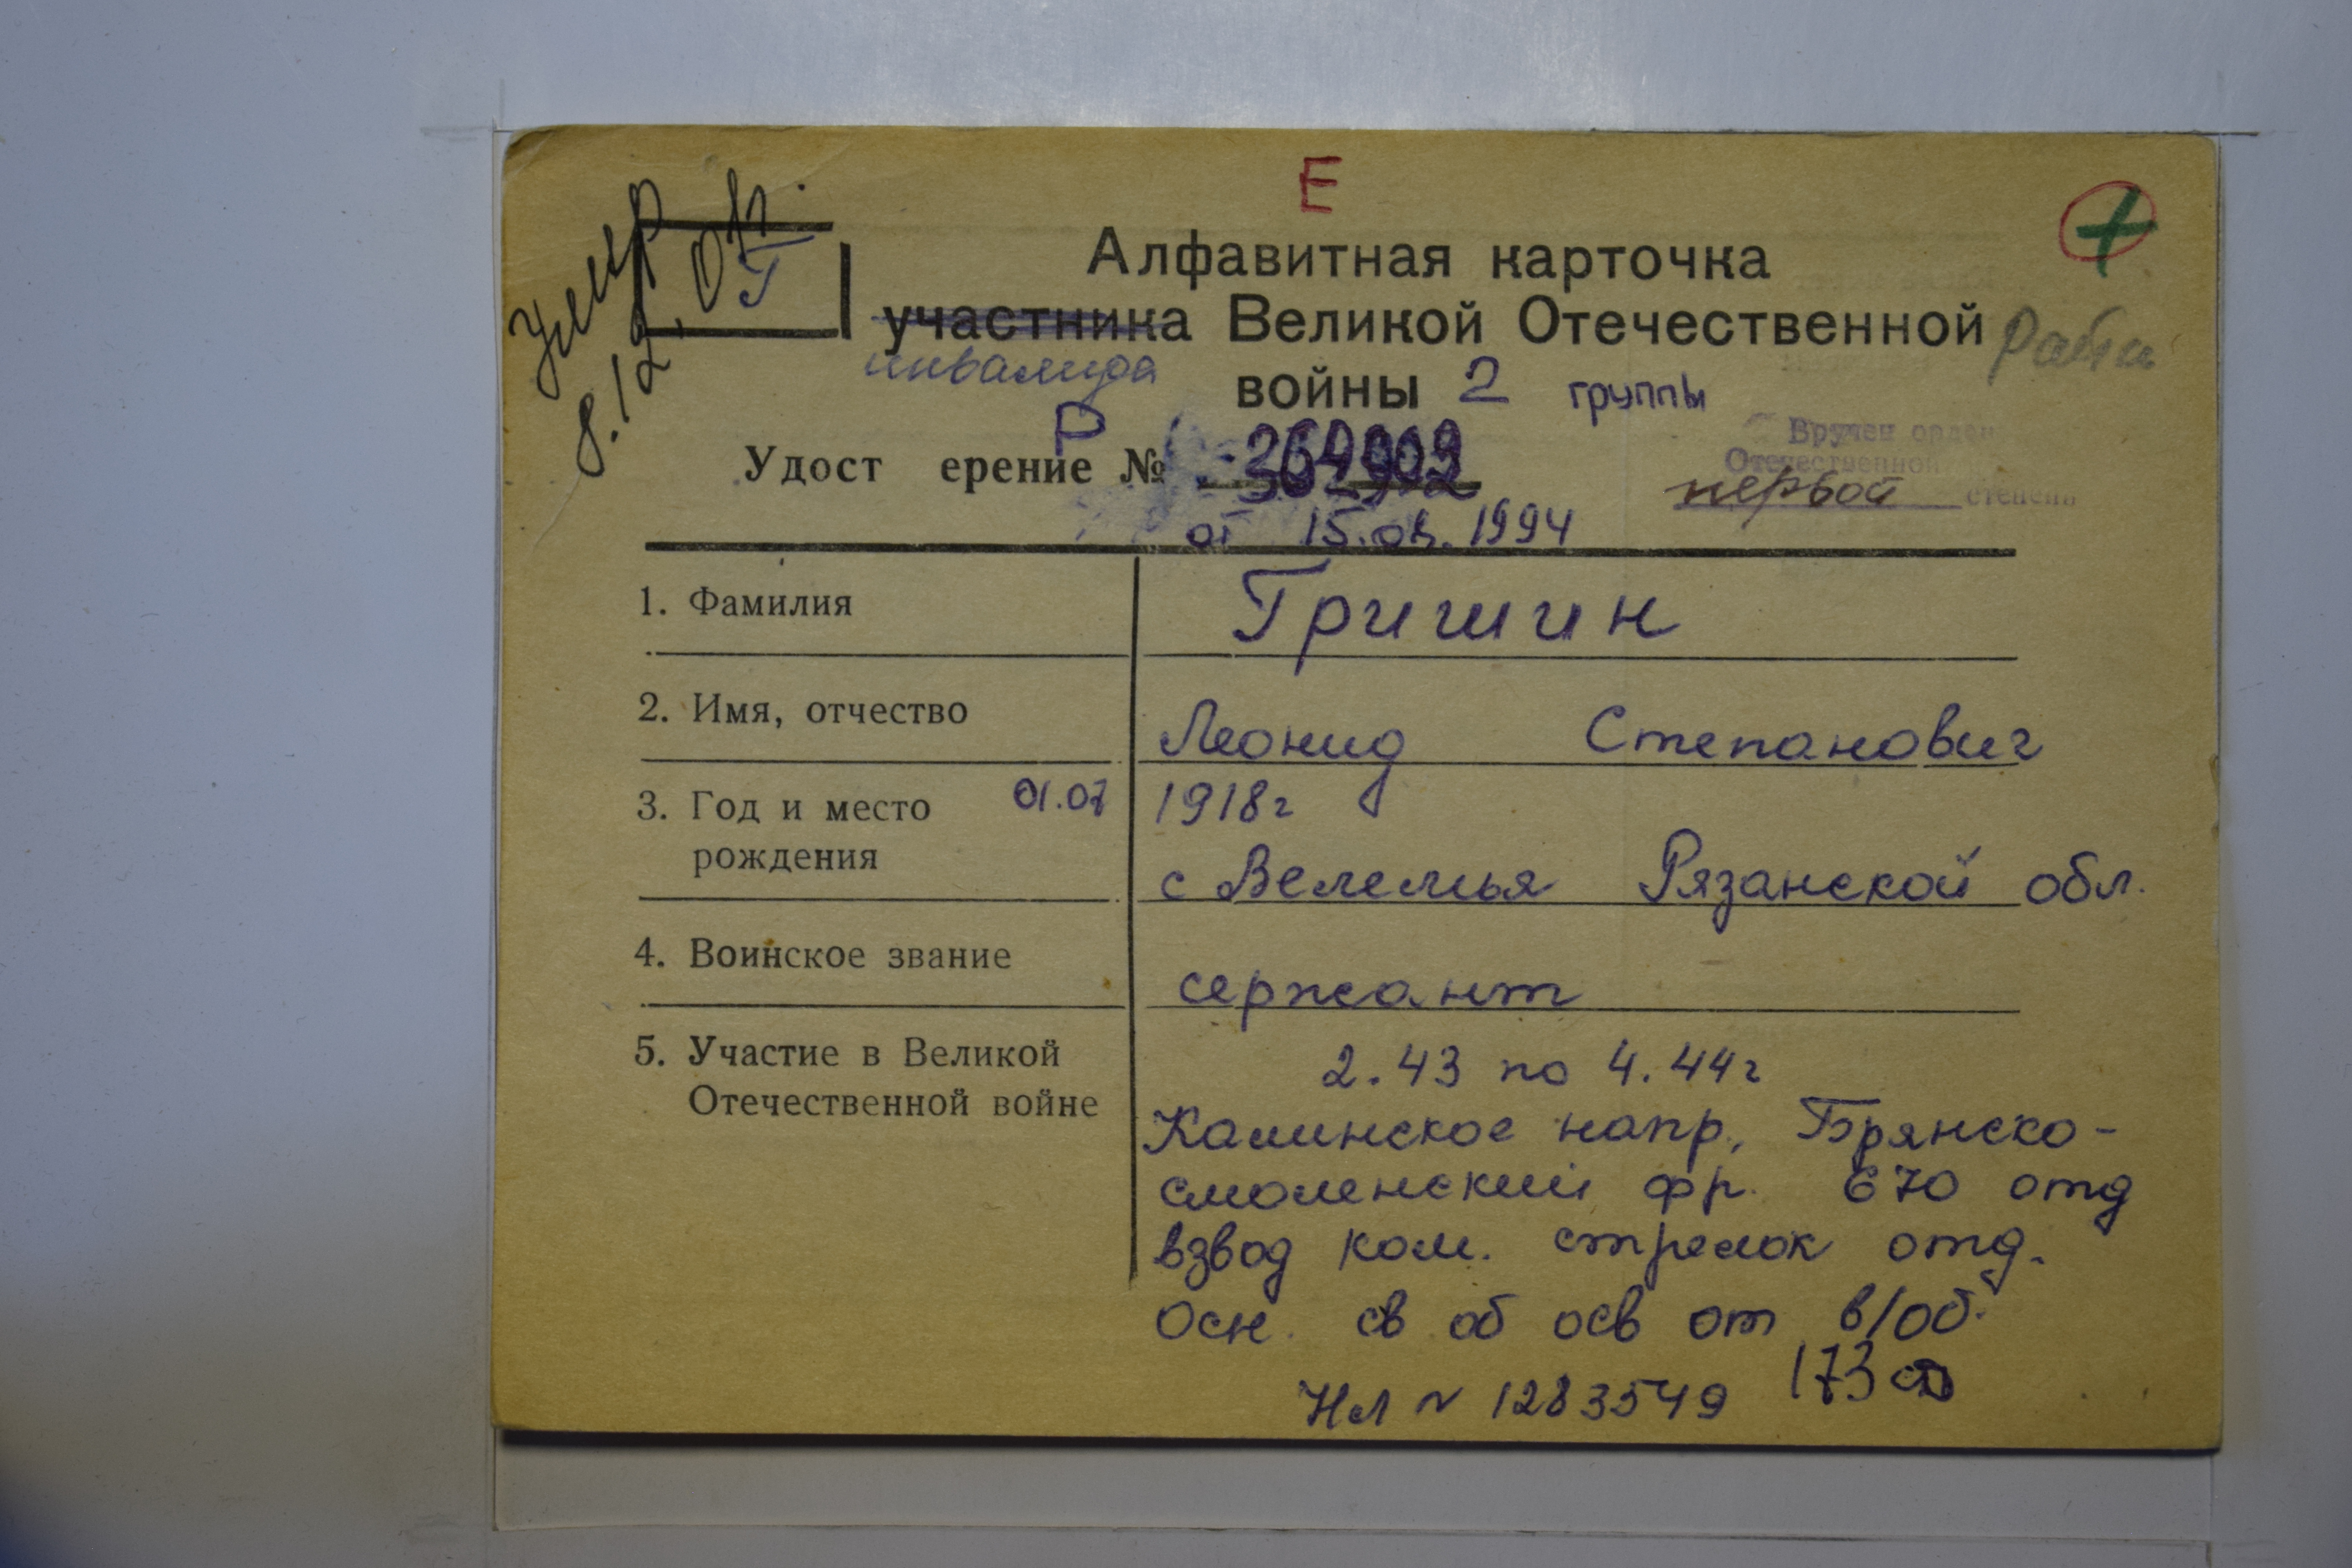 Е
Умер
8.12.01г.
Г
Алфавитная карточка
участника Великой Отечественной
инвалида
войны 2 группы
Р
Удост ерение №
от 15. 1994
Вручен орден
Отечественной
первой степени
1. Фамилия
Гришин
2. Имя, отчество
Леонид Степанович
3. Год и место 01.07 1918г
рождения
с Велемья Рязанской обл.
4. Воинское звание
сержант
5. Участие в Великой
Отечественной войне
2.43 по 4.44г
Калинское напр, Брянско-
смоленский фр. 670 отд
взвод ком. стрелок отд.
Осн. св об осв от в/об.
Нл N 1283549 173